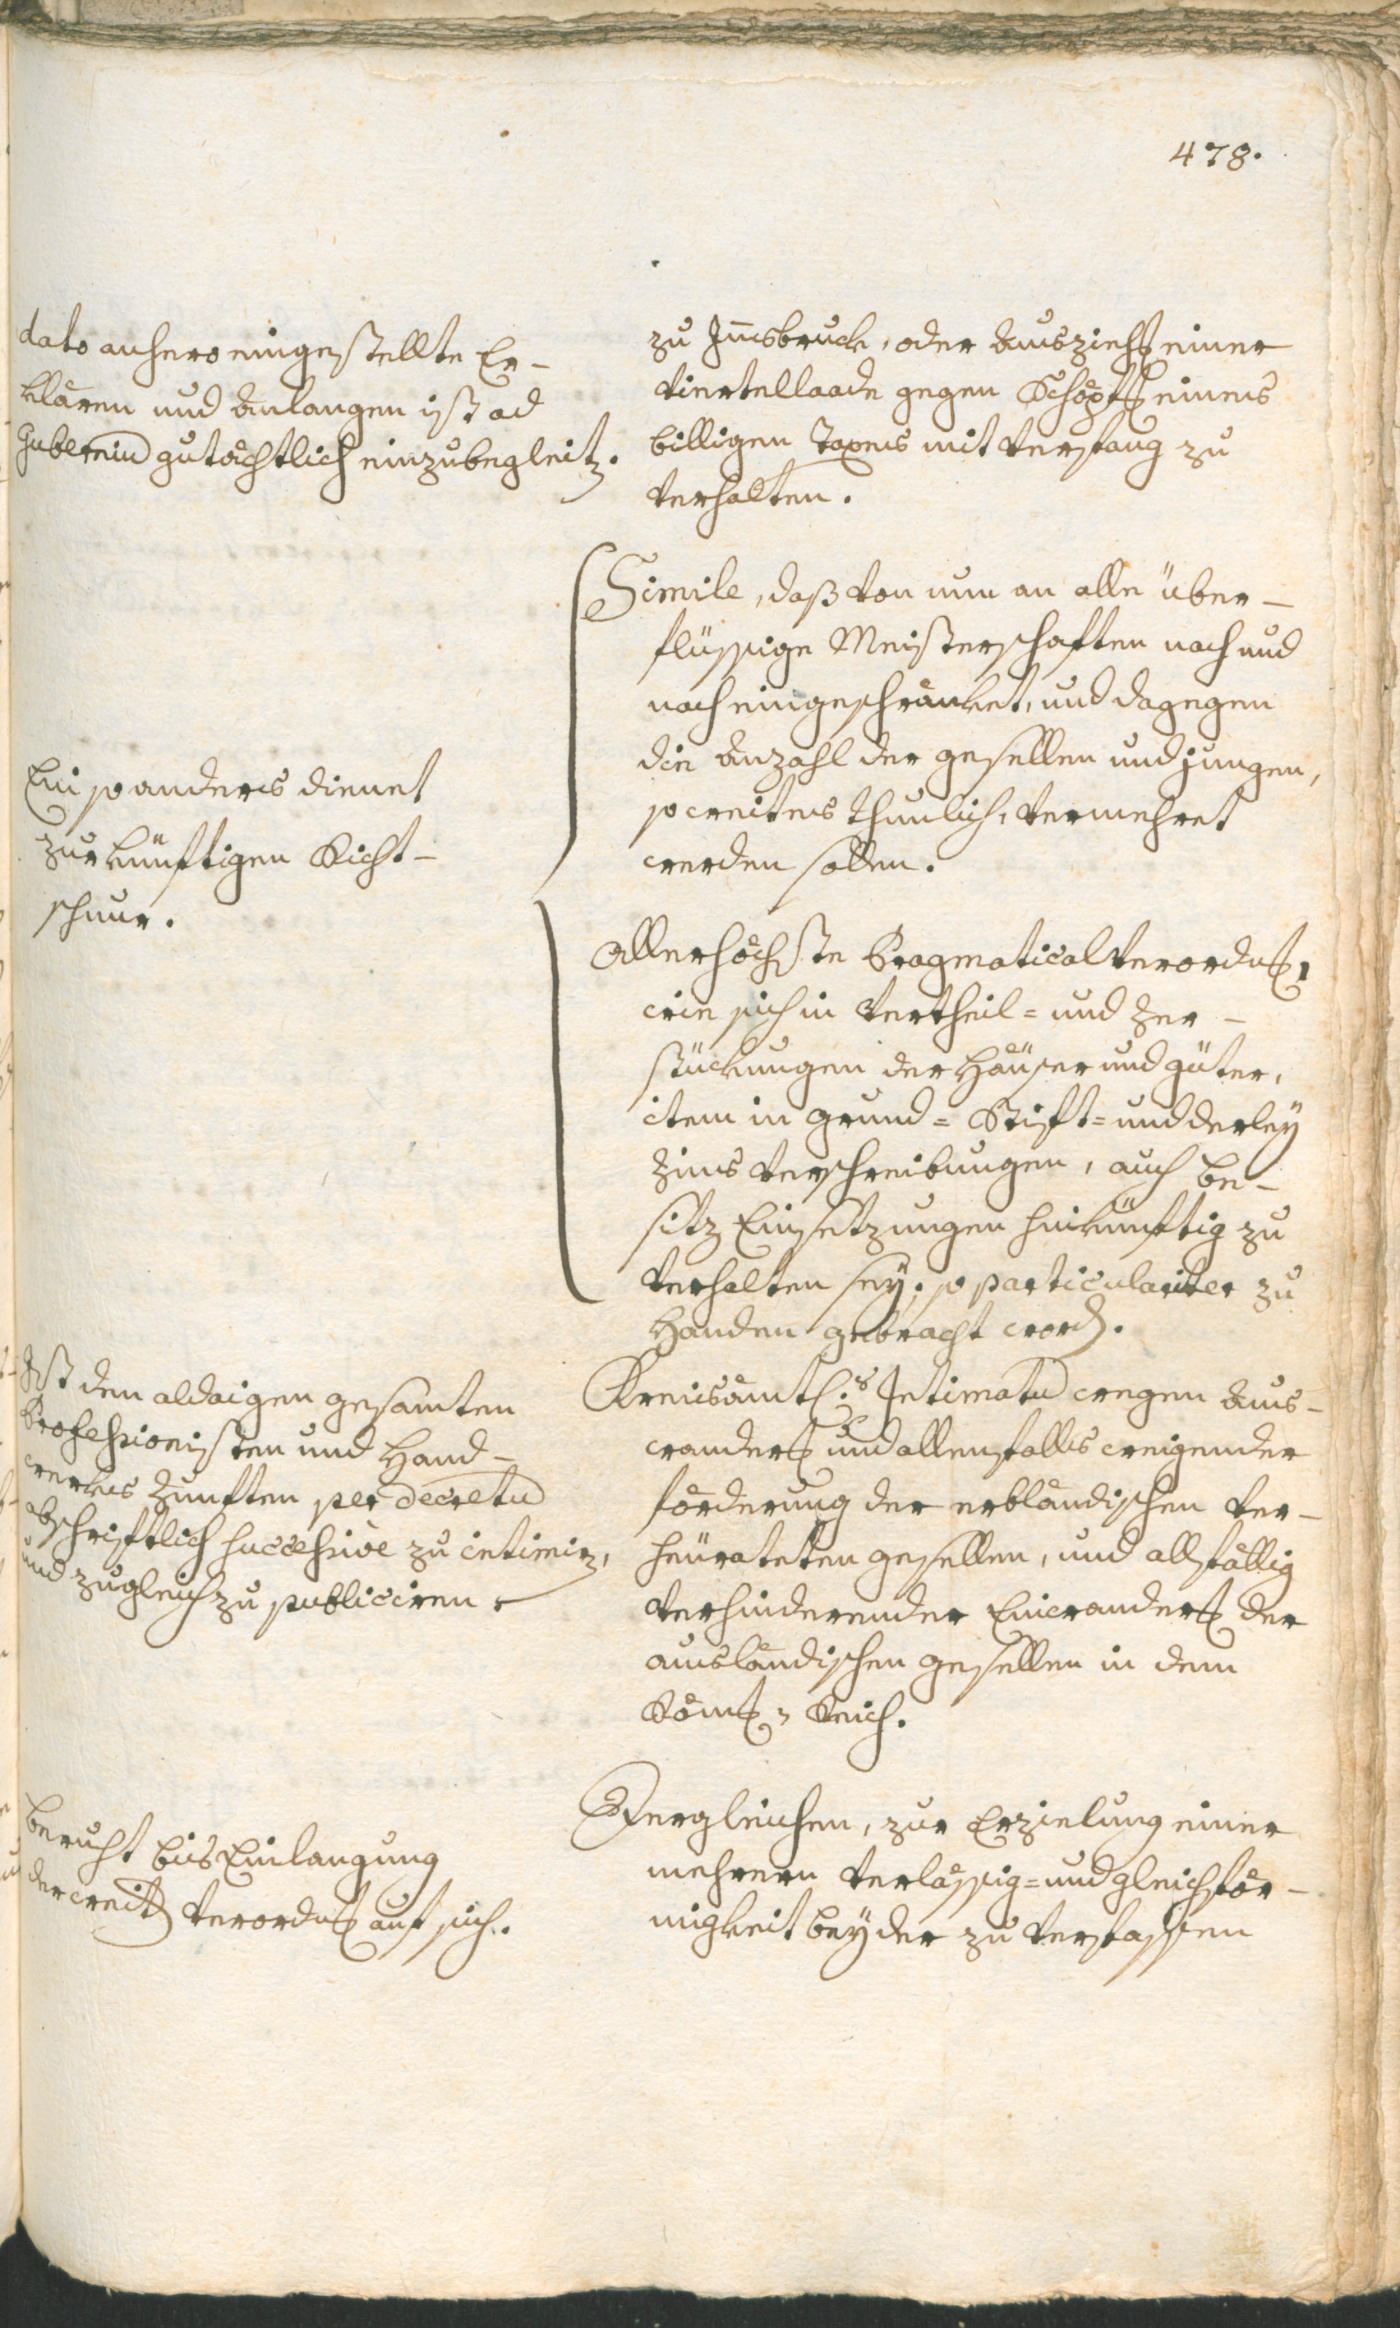 478.
dato anhero eingestellte Er-
klären und Anlangen ist ad
Gubernium gutächtlich einzubegleitz.
zu Innsbruck, oder Ausziehg einer
Viertellaade gegen Schöpfg eines
billigen Taxens mit Verfang zu
verhalten.
Simile, daß von nun an alle über-
flüssige Meisterschaften nach und
nach eingeschränket, und dagegen
die Anzahl der gesellen und jungen,
so weites thunlich, vermehret
werden sollen.
Ein so anderes dienet
zur künftigen Richt-
schnur.
Allerhöchste Pragmatical Verordng,
wie sich in Vertheil= und Zer-
stückungen der Häuser und güter,
item in grund= Stift= und derley
Zins Verschreibungen, auch be-
sitz Einsetzungen hinkünftig zu
verhalten sey, so particulariter zu
Handen gebracht word.
Ist den aldaigen gesamten
Professionisten und Hand-
werks Zunften per decretum
abschriftlich successive zu intimirz,
und zugleich zu publiciren.
Kreisämtl.s Intimatum wegen Aus-
wanderg und allenfalls weigender
förderung der erbländischen ver-
heürateten gesellen, und allfällig
verhinderender Einwanderg der
ausländischen gesellen in dem
Römg. Reich.
beruht bis Einlangung
der weit Verordng auf sich.
Dergleichen, zur Erzielung einer
mehrern Verlässig= und gleichför-
migkeit bey der zu verfassen